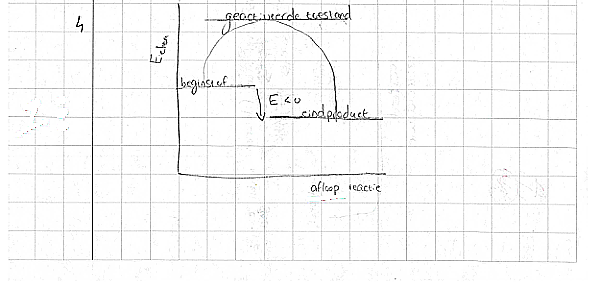 4
geactiveerde toestand
Echem
beginstof
E <0
eindproduct
afloop reactie